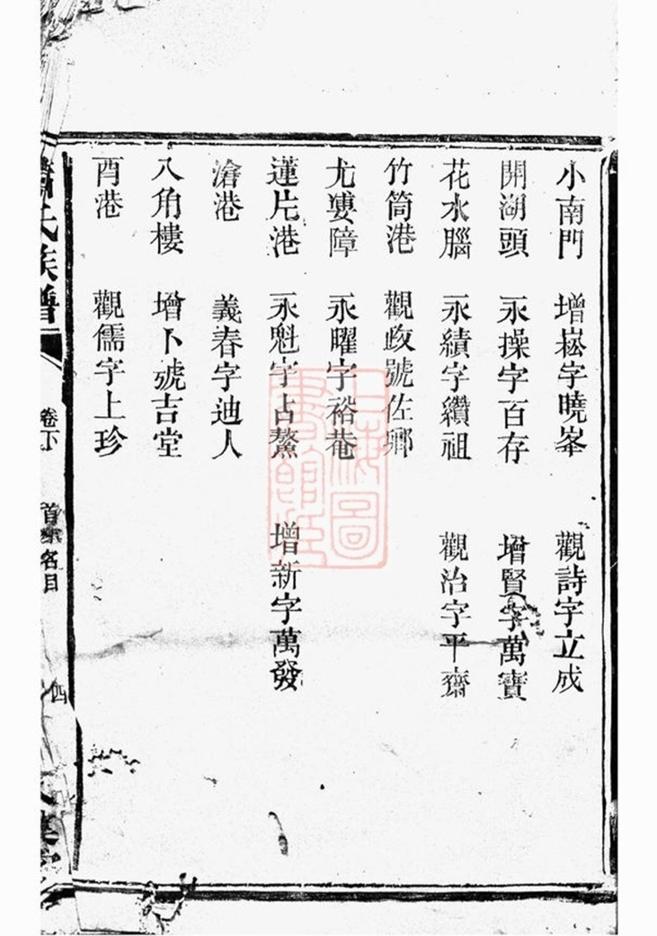 小南門 增崧字曉峯 觀詩字立成
開湖頭 永操字百存 增賢字萬寶
花水腦 永績字纘祖 觀治字平齋
竹筒港 觀政號佐卿
尤婁障 永曜字裕菴
蓮片港 永魁字占鰲 增新字萬發
滄港 義春字迪人
八角樓 增卜號吉堂
酉港 觀儒字上珍
蕭氏族譜 卷下 首事名目 四